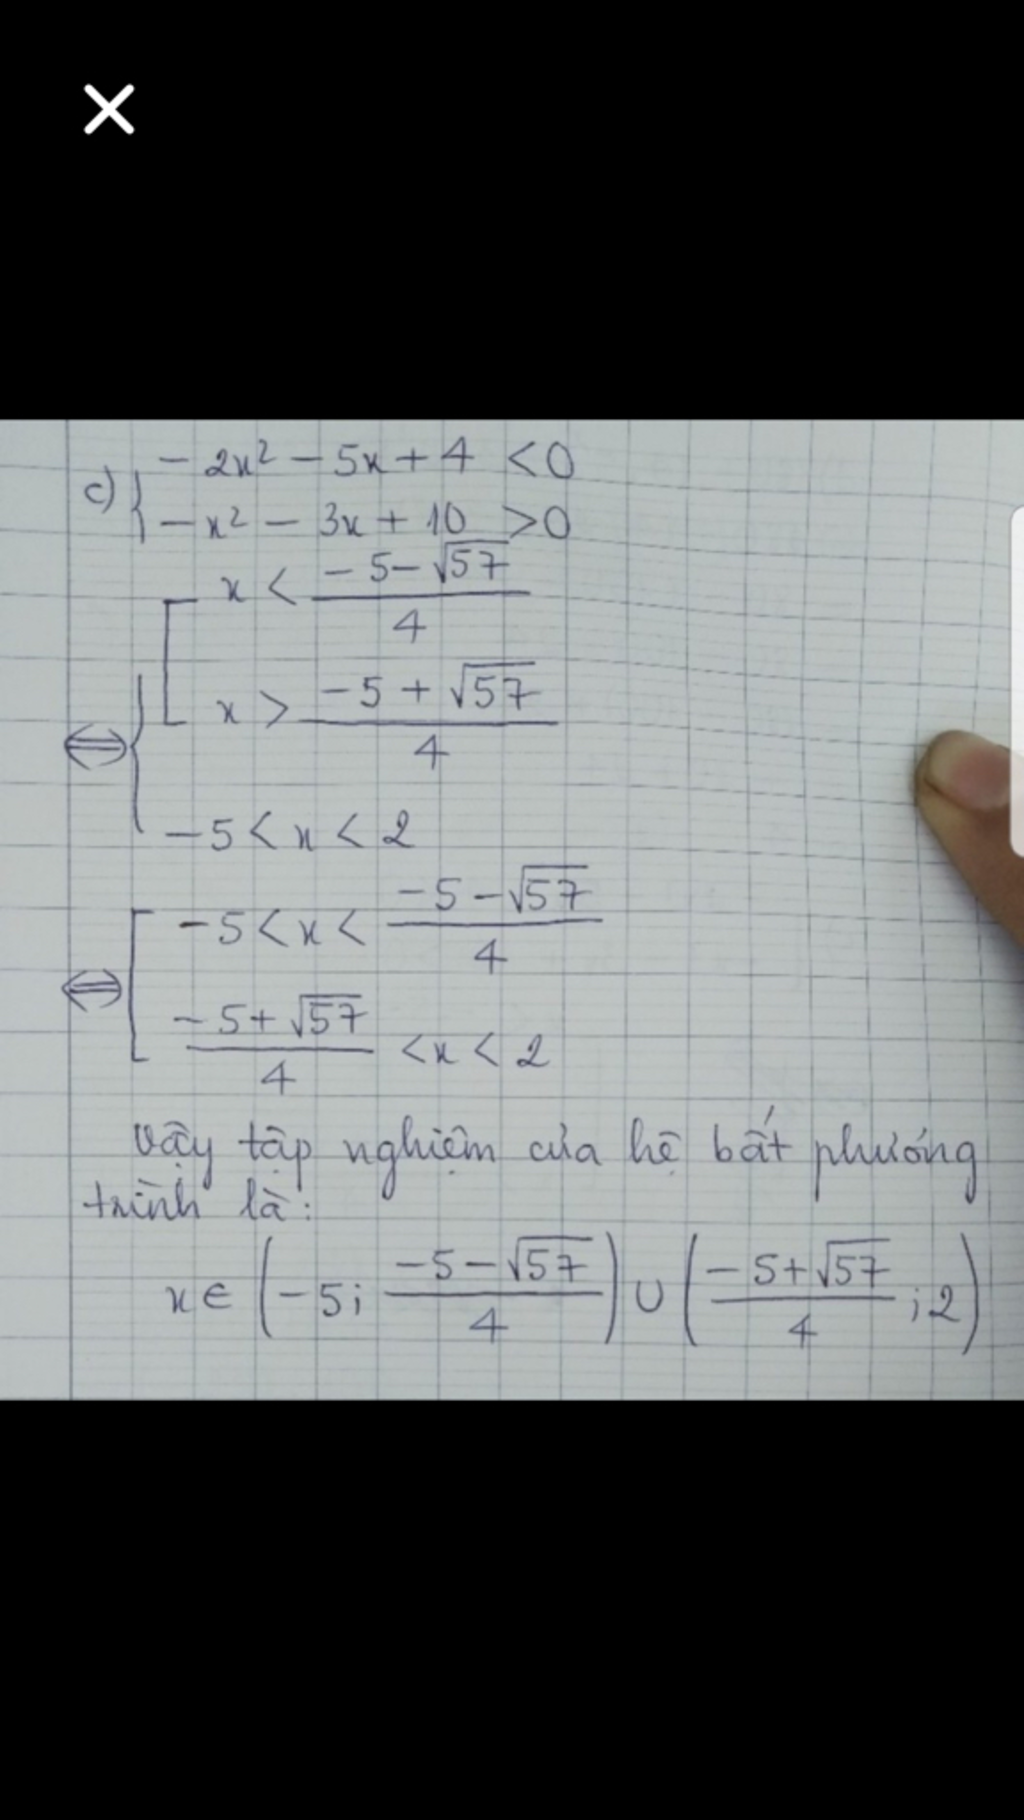 c) { - 2x² - 5x + 4 < 0
- x² - 3x + 10 > 0
x < (-5 - √57)/4
x > (-5 + √57)/4
⇔
-5 < x < 2
-5 < x < (-5 - √57)/4
⇔
(-5 + √57)/4 < x < 2
Vậy tập nghiệm của hệ bất phương
trình là:
x ∈ (-5; (-5 - √57)/4) ∪ ((-5 + √57)/4; 2)